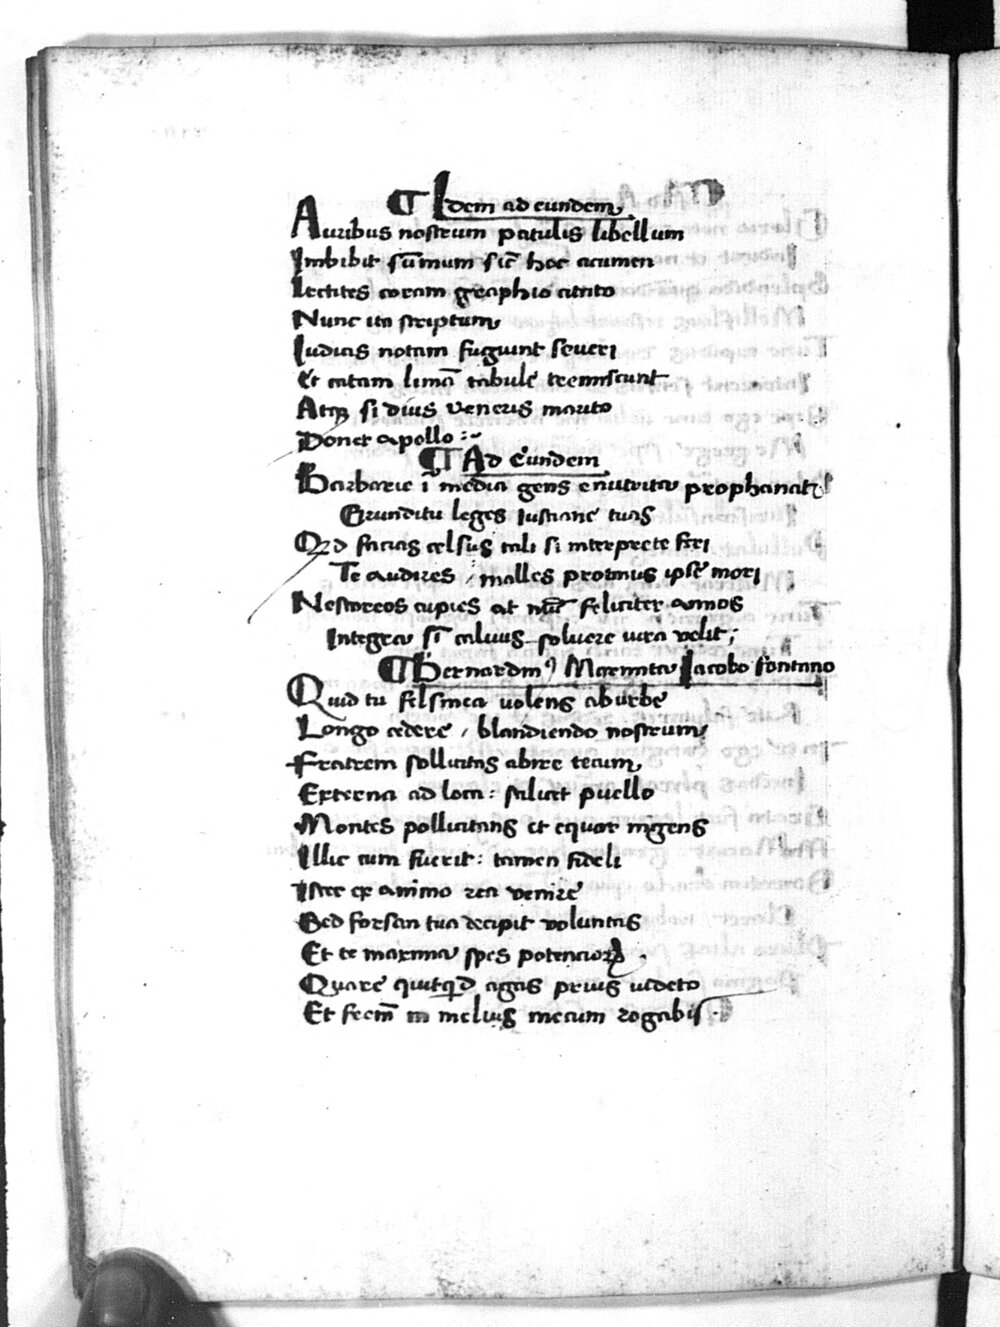 ¶ Idem ad eundem.
Auribus nostrum patulis libellum
Imbibit sūmum sic̄ hoc acumen
Lectites coram graphio attrito
Nunc ita scriptum
Iudicis notam fugiunt seueri
Et catam limā tabule tremiscunt
Atqꝫ si dius veneris marito
Donet apollo :~
¶ Ad Eundem
Barbarie ī media gens enutrita prophanat
Erunditu leges iustiniane tuas
Qꝫ facias celsus tali si interprete fieri
Te audires / malles protinus ipse mori
Nestoreos cupies at feliciter annos
Integra sī caluus soluere iura velit ;
¶ Bernardinꝰ Marmita Iacobo fontano
Quid tu felsinea volens ab urbe
Longo cedere / blandiendo nostrum
Fratrem sollicitas abire tecum
Externa ad loca : salicet puello
Montes pollicitans et equor ingens
Illic cum fuerit : tamen fideli
Ister ex animo rea venire
Sed forsan tua decipit voluntas
Et te maxima spes potenciorꝫ .
Quare quitqͥd agas prius videto
Et fecm̄ in melius mecum rogabis .